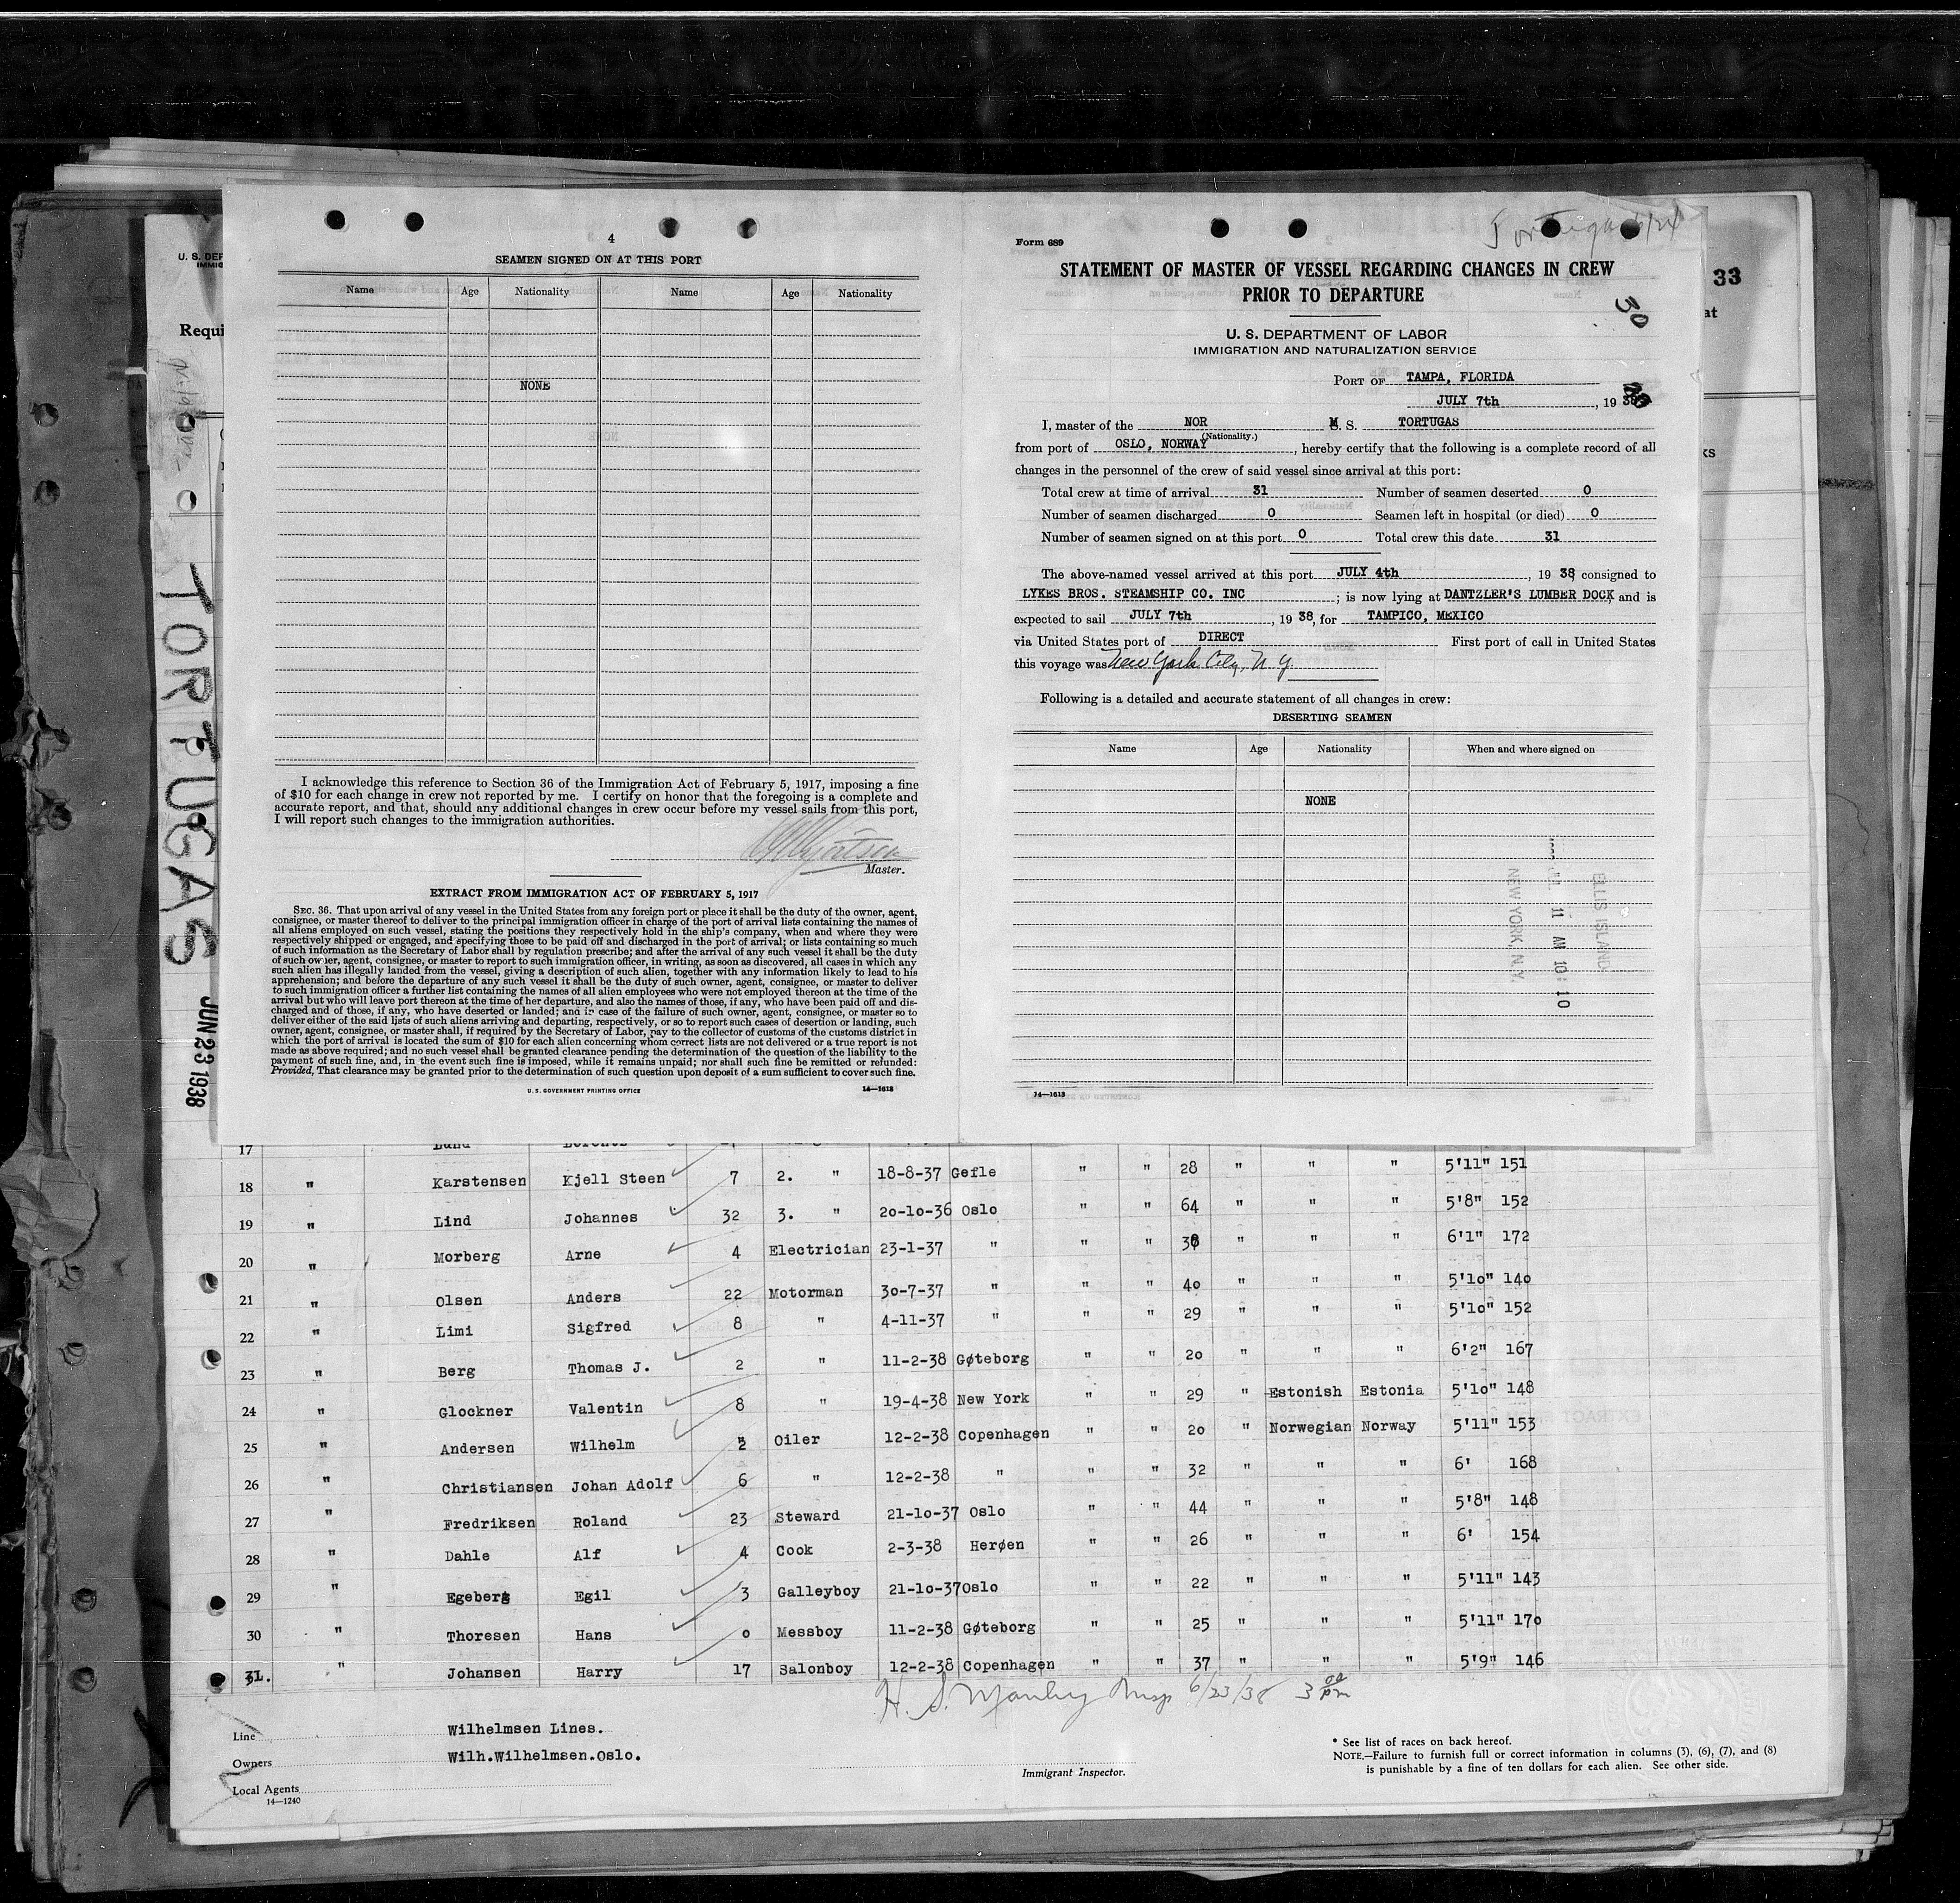 4
SEAMEN SIGNED ON AT THIS PORT
Name Age Nationality Name Age Nationality
NONE
I acknowledge this reference to Section 36 of the Immigration Act of February 5, 1917, imposing a fine
of $10 for each change in crew not reported by me. I certify on honor that the foregoing is a complete and
accurate report, and that, should any additional changes in crew occur before my vessel sails from this port,
I will report such changes to the immigration authorities.
Master.
EXTRACT FROM IMMIGRATION ACT OF FEBRUARY 5, 1917
SEC. 36. That upon arrival of any vessel in the United States from any foreign port or place it shall be the duty of the owner, agent,
consignee, or master thereof to deliver to the principal immigration officer in charge of the port of arrival lists containing the names of
all aliens employed on such vessel, stating the positions they respectively hold in the ship's company, when and where they were
respectively shipped or engaged, and specifying those to be paid off and discharged in the port of arrival; or lists containing so much
of such information as the Secretary of Labor shall by regulation prescribe; and after the arrival of any such vessel it shall be the duty
of such owner, agent, consignee, or master to report to such immigration officer, in writing, as soon as discovered, all cases in which any
such alien has illegally landed from the vessel, giving a description of such alien, together with any information likely to lead to his
apprehension; and before the departure of any such vessel it shall be the duty of such owner, agent, consignee, or master to deliver
to such immigration officer a further list containing the names of all alien employees who were not employed thereon at the time of the
arrival but who will leave port thereon at the time of her departure, and also the names of those, if any, who have been paid off and dis-
charged and of those, if any, who have deserted or landed; and in case of the failure of such owner, agent, consignee, or master so to
deliver either of the said lists of such aliens arriving and departing, respectively, or so to report such cases of desertion or landing, such
owner, agent, consignee, or master shall, if required by the Secretary of Labor, pay to the collector of customs of the customs district in
which the port of arrival is located the sum of $10 for each alien concerning whom correct lists are not delivered or a true report is not
made as above required; and no such vessel shall be granted clearance pending the determination of the question of the liability to the
payment of such fine, and, in the event such fine is imposed, while it remains unpaid; nor shall such fine be remitted or refunded:
Provided, That clearance may be granted prior to the determination of such question upon deposit of a sum sufficient to cover such fine.
U. S. GOVERNMENT PRINTING OFFICE 14—1613
Form 689
Tortugas 6/24
STATEMENT OF MASTER OF VESSEL REGARDING CHANGES IN CREW
PRIOR TO DEPARTURE
30
U. S. DEPARTMENT OF LABOR
IMMIGRATION AND NATURALIZATION SERVICE
PORT OF TAMPA, FLORIDA
JULY 7th, 19 38
I, master of the NOR M. S. TORTUGAS
(Nationality.)
from port of OSLO, NORWAY, hereby certify that the following is a complete record of all
changes in the personnel of the crew of said vessel since arrival at this port:
Total crew at time of arrival 31 Number of seamen deserted 0
Number of seamen discharged 0 Seamen left in hospital (or died) 0
Number of seamen signed on at this port 0 Total crew this date 31
The above-named vessel arrived at this port JULY 4th, 19 38, consigned to
LYKES BROS. STEAMSHIP CO. INC; is now lying at DANTZLER'S LUMBER DOCK and is
expected to sail JULY 7th, 19 38, for TAMPICO, MEXICO
via United States port of DIRECT First port of call in United States
this voyage was New York City, N.Y.
Following is a detailed and accurate statement of all changes in crew:
DESERTING SEAMEN
Name Age Nationality When and where signed on
NONE
ELLIS ISLAND
11 AM 10:10
NEW YORK, N.Y.
14—1613
33
U. S. DEP
IMMIG
Requi
at
ks
TORTUGAS
JUN 23 1938
17 Lund
18 " Karstensen Kjell Steen 7 2. " 18-8-37 Gefle " " 28 " " " 5'11" 151
19 " Lind Johannes 32 3. " 20-10-36 Oslo " " 64 " " " 5'8" 152
20 " Morberg Arne 4 Electrician 23-1-37 " " " 38 " " " 6'1" 172
21 " Olsen Anders 22 Motorman 30-7-37 " " " 40 " " " 5'10" 140
22 " Limi Sigfred 8 " 4-11-37 " " " 29 " " " 5'10" 152
23 " Berg Thomas J. 2 " 11-2-38 Gøteborg " " 20 " " " 6'2" 167
24 " Glockner Valentin 8 " 19-4-38 New York " " 29 " Estonish Estonia 5'10" 148
25 " Andersen Wilhelm 2 Oiler 12-2-38 Copenhagen " " 20 " Norwegian Norway 5'11" 153
26 " Christiansen Johan Adolf 6 " 12-2-38 " " " 32 " " " 6' 168
27 " Fredriksen Roland 23 Steward 21-10-37 Oslo " " 44 " " " 5'8" 148
28 " Dahle Alf 4 Cook 2-3-38 Herøen " " 26 " " " 6' 154
29 " Egeberg Egil 3 Galleyboy 21-10-37 Oslo " " 22 " " " 5'11" 143
30 " Thoresen Hans 0 Messboy 11-2-38 Gøteborg " " 25 " " " 5'11" 170
31. " Johansen Harry 17 Salonboy 12-2-38 Copenhagen " " 37 " " " 5'9" 146
H. S. Manley Insp 6/23/38 3 00 pm
Line Wilhelmsen Lines.
Owners Wilh.Wilhelmsen.Oslo.
Local Agents
14—1240
Immigrant Inspector.
* See list of races on back hereof.
NOTE.—Failure to furnish full or correct information in columns (3), (6), (7), and (8)
is punishable by a fine of ten dollars for each alien. See other side.